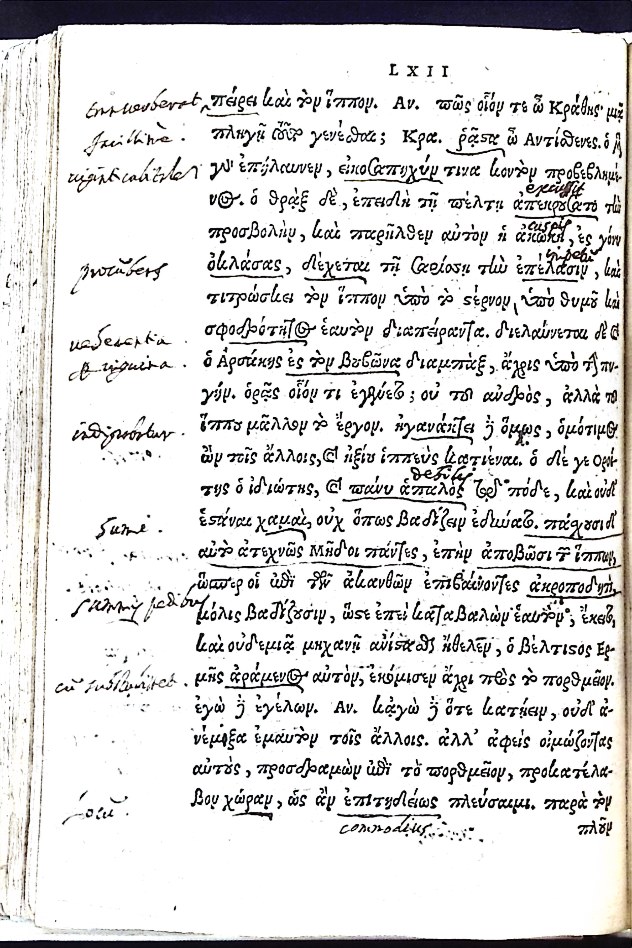 LXII
πείρει καὶ τὸν ἵππον. Αν. πῶς οἷόν τε ὦ Κράθης μιᾷ
πληγῇ τοῦτο γενέσθαι; Κρα. ῥᾷστα ὦ Αντίσθενες. ὁ
γὸ ἐπήλαυνεν, εἰκοσαπηχύν τινα κοντὸν προβεβλημέ-
νος. ὁ θρᾷξ δὲ, ἐπειδὴ τῇ πέλτῃ ἀπεκρούσατο τὴν
excussit
προσβολὴν, καὶ παρῆλθεν αὐτὸν ἡ ἀκωκὴ, ἐς γόνυ
cuspis
ὀκλάσας, δέχεται τῇ σαρίσσῃ τὴν ἐπέλασιν, καὶ
procubens
τιτρώσκει τὸν ἵππον ὑπὸ τὸ στέρνον, ὑπὸ θυμοῦ καὶ
σφοδρότητος ἑαυτὸν διαπείραντα. διελαύνεται δὲ καὶ
ὁ Ἀρσάκης ἐς τὸν βουβῶνα διαμπὰξ, ἄχρις ὑπὸ τὴν πυ-
γήν. ὁρᾷς οἷόν τι ἐγένετο; οὐ τοῦ ἀνδρὸς, ἀλλὰ τοῦ
ἵππου μᾶλλον τὸ ἔργον. ἠγανάκτει δ' ὅμως, ὁμότιμος
ὢν τοῖς ἄλλοις, καὶ ἠξίου ἱππεὺς κατιέναι. ὁ δέ γε Οροί-
της ὁ ἰδιώτης, καὶ πάνυ ἁπαλὸς τὼ πόδε, καὶ οὐδ'
debilis
ἑστάναι χαμαὶ, οὐχ ὅπως βαδίζειν ἐδύνατο. πάχουσι δ'
αὐτὸ ἀτεχνῶς Μῆδοι πάντες, ἐπὴν ἀποβῶσι τῶν ἵππων,
ὥσπερ οἱ ἐπὶ τῶν ἀκανθῶν ἐπιβαίνοντες ἀκροποδητὶ
summis pedibus
μόλις βαδίζουσιν, ὥστε ἐπεὶ καταβαλὼν ἑαυτὸν, ἔκειτο,
καὶ οὐδεμιᾷ μηχανῇ ἀνίστασθαι ἤθελεν, ὁ βέλτιστος Ερ-
μῆς ἀράμενος αὐτὸν, ἐκόμισεν ἄχρι πρὸς τὸ πορθμεῖον.
ἐγὼ δ' ἐγέλων. Αν. κἀγὼ δ' ὅτε κατῄειν, οὐδ' ἀ-
νέμιξα ἐμαυτὸν τοῖς ἄλλοις. ἀλλ' ἀφεὶς οἰμώζοντας
αὐτοὺς, προσδραμὼν ἐπὶ τὸ πορθμεῖον, προκατέλα-
βον χώραν, ὡς ἂν ἐπιτηδείως πλεύσαιμι. παρὰ τὸν
locū.
commodius
πλοῦν